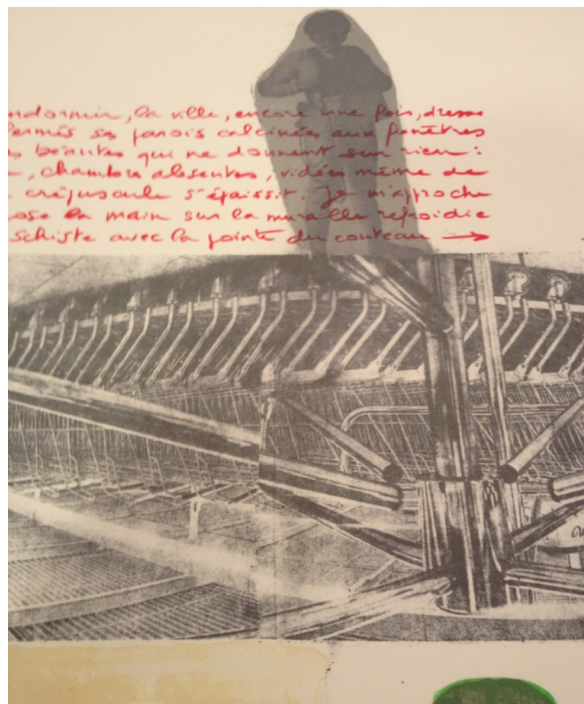 ndormir, la ville, encore une fois, dresse
fermés ses parois calcinées aux fenêtres
béantes qui ne donnent sur rien :
, chambres absentes, vidées même de
crépuscule s'épaissit. Je m'approche
ose la main sur la muraille refroidie
schiste avec la pointe du couteau →